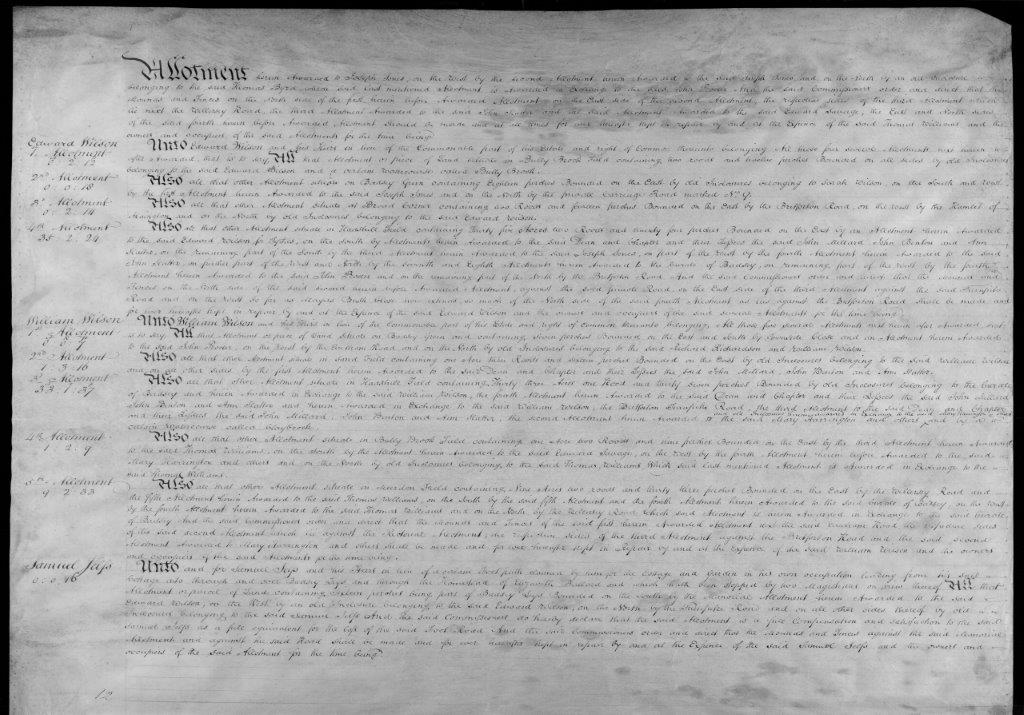 Allotment herein Awarded to Joseph Jones, on the West by the second Allotment herein Awarded to the said Joseph Jones, and on the North by an old Inclosure
belonging to the said Thomas Byrd which said last mentioned Allotment is Awarded in Exchange to the said John And the said Commissioners order and direct that the
Mounds and Fences on the North side of the first herein before Awarded Allotment on the East side of the second Allotment, the respective sides of the third Allotment which
lie next the Willersey Road, the third Allotment Awarded to the said John and the said Allotment Awarded to the said Edward Savage, the East and North sides
of the said fourth herein before Awarded Allotment should be made and at all times for ever hereafter kept in repair by and at the Expence of the said Thomas Williams and the
owners and occupiers of the said Allotments for the time being
Edward Wilson
1st Allotment
Unto Edward Wilson and his Heirs in lieu of the Commonable part of his Estate and right of Common thereunto belonging All those four several Allotments next herein
after Awarded, that is to say, All that Allotment or piece of Land situate in Bully Brook Field containing two roods and twelve perches Bounded on all sides by old Inclosures
belonging to the said Edward Wilson and a certain watercourse called Bully Brook.
2nd Allotment
0. 0. 18
Also all that other Allotment situate on Badsey Green containing Eighteen perches Bounded on the East by old Inclosures belonging to Sarah Wilson, on the South and West
by the first Allotment herein Awarded to the said Joseph Jones and on the North by the private Carriage Road marked No. 9.
3d Allotment
0. 2. 14
Also all that other Allotment situate at Broad Corner containing two Roods and fourteen perches Bounded on the East by the Bretforton Road, on the West by the Hamlet of
Aldington and on the North by old Inclosures belonging to the said Edward Wilson.
4th Allotment
35. 2. 24
Also all that other Allotment situate in Harshill Field containing Thirty five Acres two Roods and twenty four perches Bounded on the East by an Allotment herein Awarded
to the said Edward Wilson for Tythes, on the South by Allotments herein Awarded to the said Dean and Chapter and their Lessees the said John Millard John Benton and Ann
on the remaining part of the South by the third Allotment herein Awarded to the said Joseph Jones, on part of the West by the fourth Allotment herein Awarded to the said
John on further part of the West and North by the seventh and Eighth Allotments herein Awarded to the Curate of Badsey, on remaining part of the West by the fourth
Allotment herein Awarded to the said John and on the remaining part of the North by the Bretforton Road And the said Commissioners order and direct that the Mounds and
Fences on the North side of the said second herein before Awarded Allotment, against the said private Road, on the East side of the third Allotment against the said Turnpike
Road and on the West so far as Bush Close now extends so much of the North side of the said fourth Allotment as lies against the Bretforton Road shall be made and
for ever hereafter kept in repair by and at the Expence of the said Edward Wilson and the owners and occupiers of the said several Allotments for the time being
William Wilson
1st Allotment
Unto William Wilson and his Heirs in lieu of the Commonable part of his Estate and right of Common thereunto belonging, All those five several Allotments next herein after Awarded that
is to say, All that Allotment or piece of Land situate on Badsey Green and containing seven perches Bounded on the East and South by Cowside Close and an Allotment herein Awarded
to the said John on the West by the Road and on the North by old Inclosures belonging to the said Richard Richardson and William Wilson.
2nd Allotment
1. 3. 16
Also all that other Allotment situate in Sand Field containing one Acre three Roods and sixteen perches Bounded on the East by old Inclosures belonging to the said William Wilson
and on all other sides by the first Allotment herein Awarded to the said Dean and Chapter and their Lessees the said John Millard, John Benton and Ann
3d Allotment
33. 1. 37
Also all that other Allotment situate in Harshill Field containing Thirty three Acres one Rood and thirty seven perches Bounded by old Inclosures belonging to the Curate
of Badsey and herein Awarded in Exchange to the said William Wilson, the fourth Allotment herein Awarded to the said Dean and Chapter and their Lessees the said John Millard
John Benton and Ann and herein Awarded in Exchange to the said William Wilson, the Bretforton Turnpike Road, the third Allotment to the said Dean and Chapter
and their Lessees the said John Millard, John Benton and Ann the second Allotment herein Awarded to the said Mary Harrington and others and by a
certain Watercourse called Claybrook.
4th Allotment
1. 2. 9
Also all that other Allotment situate in Bully Brook Field containing one Acre two Roods and nine perches Bounded on the East by the third Allotment herein Awarded
to the said Thomas Williams, on the South by the Allotment herein Awarded to the said Edward Savage, on the West by the fourth Allotment herein before Awarded to the said
Mary Harrington and others and on the North by old Inclosures belonging to the said Thomas Williams Which said last mentioned Allotment is Awarded in Exchange to the
said Thomas Williams.
5th Allotment
9. 2. 33
Also all that other Allotment situate in Field containing Nine Acres two roods and thirty three perches Bounded on the East by the Willersey Road and
the fifth Allotment herein Awarded to the said Thomas Williams, on the South by the said fifth Allotment and the fourth Allotment herein Awarded to the said Curate of Badsey, on the West
by the fourth Allotment herein Awarded to the said Thomas Williams and on the North by the Willersey Road which said Allotment is herein Awarded in Exchange to the said Curate
of Badsey And the said Commissioners order and direct that the Mounds and Fences of the said first herein Awarded Allotment next the said Road the respective sides
of the said second Allotment which lie against the Allotment, the respective sides of the third Allotment against the Bretforton Road and the said second
Allotment Awarded to Mary Harrington and others shall be made and for ever hereafter kept in Repair by and at the Expence of the said William Wilson and the owners
and occupiers of the said Allotments for the time being.
Samuel Jelfs
0. 0. 16
Unto and for Samuel Jelfs and his Heirs in lieu of a certain Foot path claimed by him for the Cottage and Garden in his own occupation leading from his said
Cottage into through and over Badsey and through the Homestead of Ballard and which hath been stopped by two Magistrates on view thereof All that
Allotment or parcel of Land containing sixteen perches being part of Badsey Bounded on the South by the Manorial Allotment herein Awarded to the said
Edward Wilson, on the West by an old Inclosure belonging to the said Edward Wilson, on the North by the Turnpike Road and on all other sides thereof by old
Inclosures belonging to the said Samuel Jelfs And the said Commissioners do hereby declare that the said Allotment is a full Compensation and satisfaction to the said
Samuel Jelfs as a full equivalent for the loss of the said Foot Road And the said Commissioners order and direct that the Mounds and Fences against the said Manorial
Allotment and against the said Road shall be made and for ever hereafter kept in repair by and at the Expence of the said Samuel Jelfs and the owners and
occupiers of the said Allotment for the time being
12